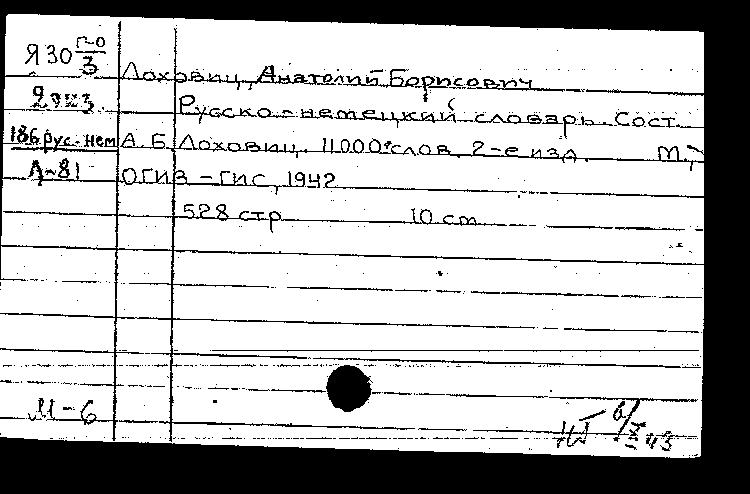 Я30 п-о/3
Лоховиц, Анатолий Борисович
2 экз.
Русско-немецкий словарь. Сост.
186 рус.-нем
А. Б. Лоховиц. 11000 слов. 2-е изд. М.,
Л-81
ОГИЗ - ГИС, 1942
528 стр. 10 см.
М-6
6/X 43